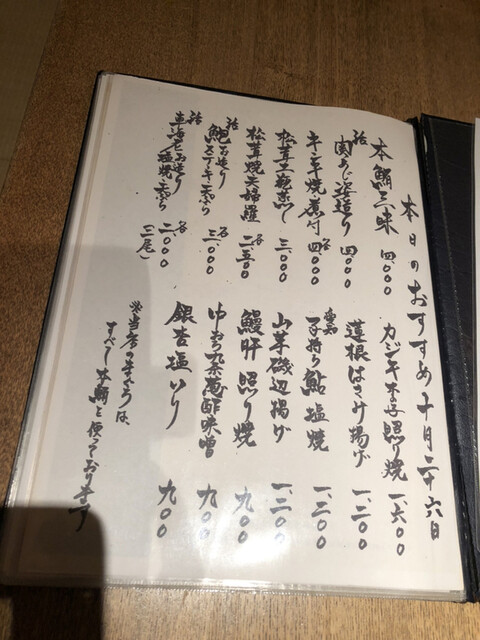 本日のおすすめ 十月二十六日
本鮪三昧 四、〇〇〇
活 関あじ姿造り 四、〇〇〇
キンキ焼・煮付 各四、〇〇〇
松茸土瓶蒸し 三、〇〇〇
松茸焼・天婦羅 各二、五〇〇
活 鮑お造り
ステーキ・天ぷら 各三、〇〇〇
活 車海老お造り
塩焼・天ぷら 各二、〇〇〇
(三尾)
カジキまぐろ照り焼 一、六〇〇
蓮根はさみ揚げ 一、二〇〇
愛知 子持ち鮎塩焼 一、三〇〇
山芋磯辺揚げ 一、二〇〇
鰻肝照り焼 九〇〇
九条葱酢味噌 九〇〇
銀杏塩いり 九〇〇
当店のまぐろは、
すべて本鮪を使っております